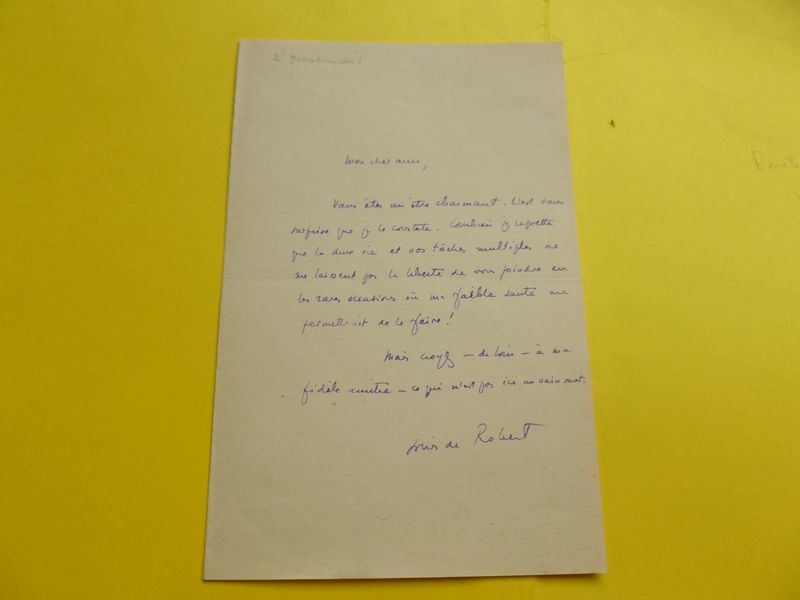 à
Mon cher ami,
Vous êtes un être charmant. C'est sans
surprise que je le constate. Combien je regrette
que la dure vie et vos tâches multiples ne
me laissent pas la liberté de vous joindre en
les rares occasions où ma faible santé me
permettrait de le faire !
Mais croyez — de loin — à ma
fidèle amitié — ce qui n'est pas ici un vain mot.
Louis de Robert